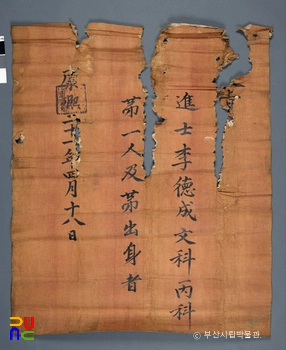 進士李德成文科丙科
第一人及第出身者
康熙二十一年四月十八日
© 부산시립박물관